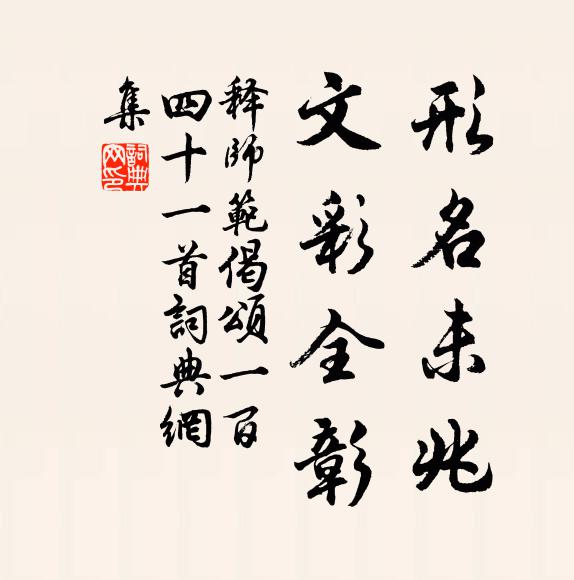 形名未兆
文彩全彰
释師範偈頌一百
四十一首詞典網
集
詞典網印